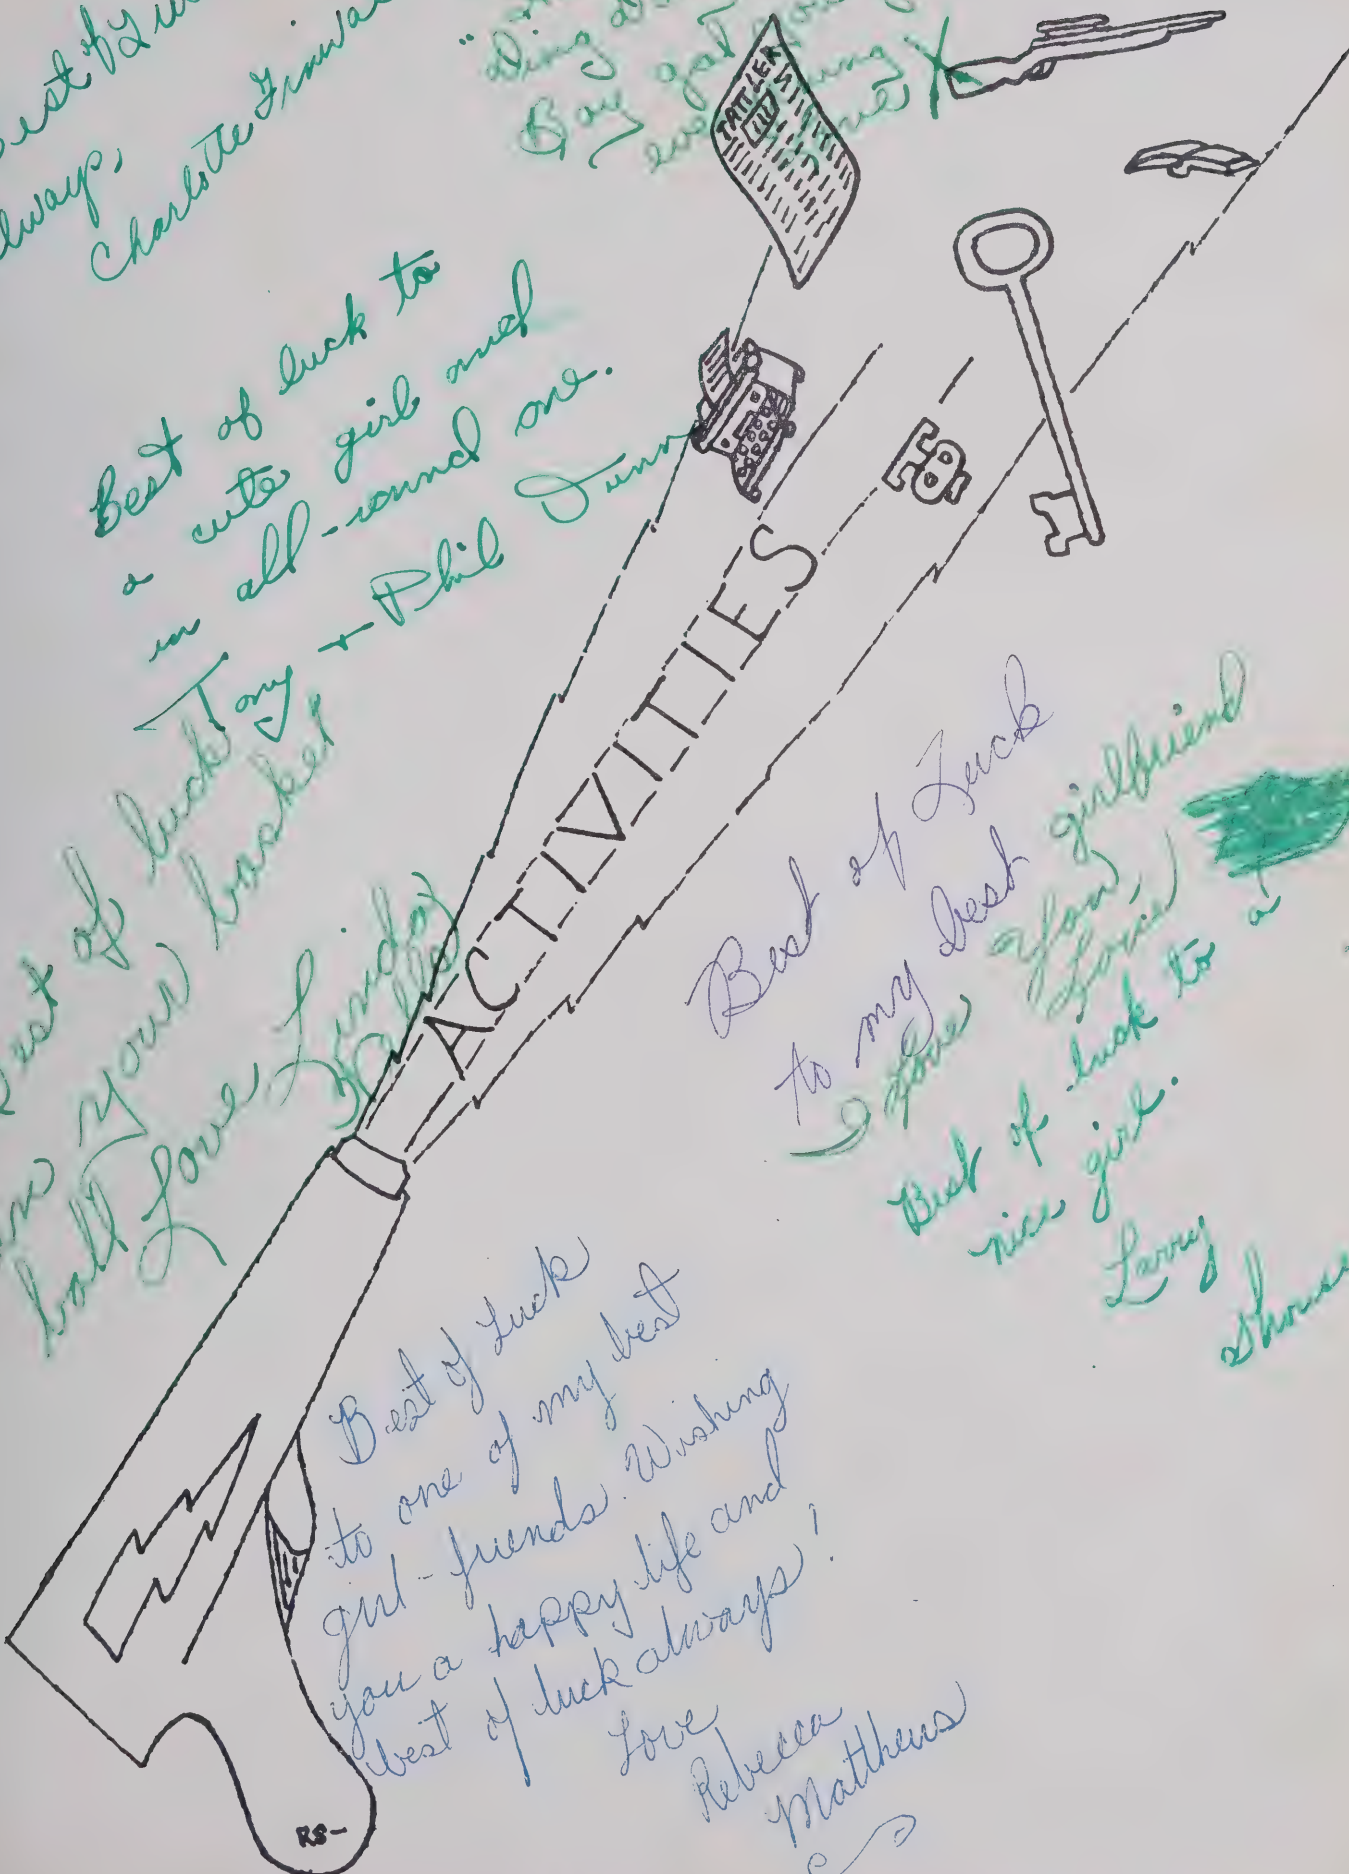 Best of Lu
always,
Charlotte
Boy
TATLER
Best of luck to
a cute girl and
an all-round one.
Tony + Phil Dunn
est of luck
in your basket
ball Love, Linda
ACTIVITIES
FBA
Best of Luck
to my best girlfriend
I Love You,
Best of luck to a
nice girl.
Larry
Shouse
Best of Luck
to one of my best
girl-friends. Wishing
you a happy life and
best of luck always!
Love
Rebecca
Matthews
RS-